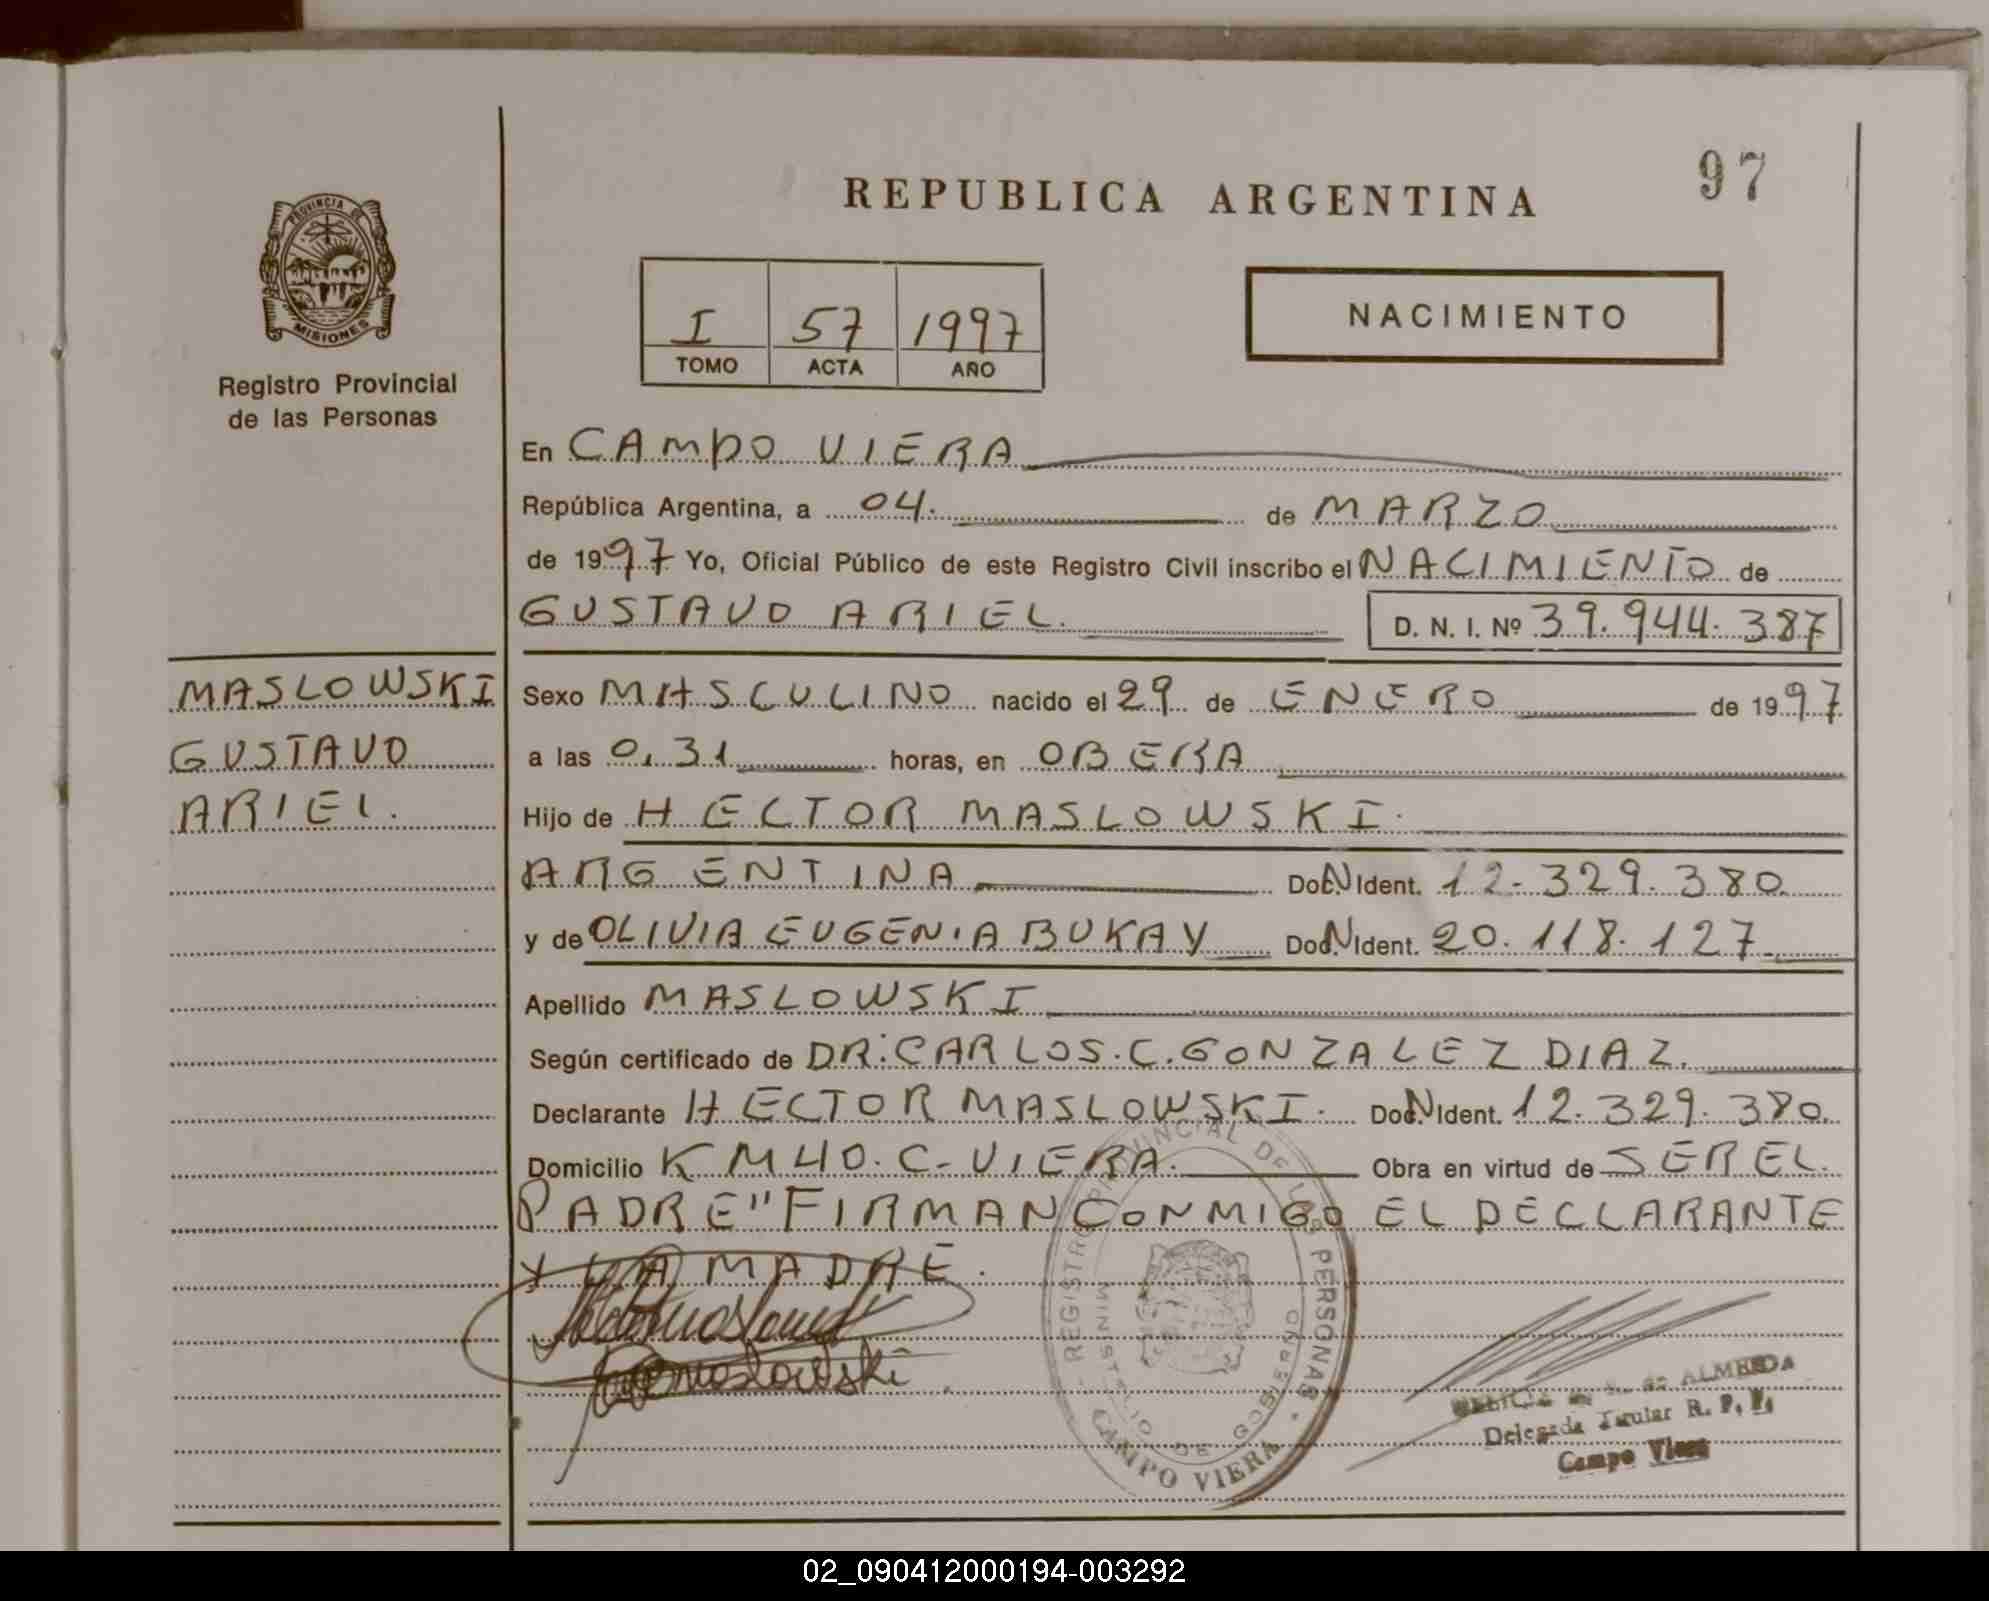 97
REPUBLICA ARGENTINA
PROVINCIA DE
MISIONES
Registro Provincial
de las Personas
NACIMIENTO
I 57 1997
TOMO ACTA AÑO
En CAMPO VIERA
República Argentina, a 04. de MARZO
de 1997 Yo, Oficial Público de este Registro Civil inscribo el NACIMIENTO de
GUSTAVO ARIEL. D. N. I. Nº 39.944.387
MASLOWSKI
GUSTAVO
ARIEL.
Sexo MASCULINO nacido el 29 de ENERO de 1997
a las 0.31 horas, en OBERA
Hijo de HECTOR MASLOWSKI.
ARGENTINA Doc.N Ident. 12.329.380
y de OLIVIA EUGENIA BUKAY Doc.N Ident. 20.118.127
Apellido MASLOWSKI
Según certificado de DR:CARLOS.C.GONZALEZ DIAZ.
Declarante HECTOR MASLOWSKI. Doc.N Ident. 12.329.380
Domicilio KM40.C-VIERA. Obra en virtud de SER EL
PADRE" FIRMAN CONMIGO EL DECLARANTE
Y LA MADRE.
Maslowski
REGISTRO PROVINCIAL DE LAS PERSONAS
MINISTERIO DE GOBIERNO
CAMPO VIERA
de ALMEIDA
Delegada Titular R. P. P.
Campo Viera
02_090412000194-003292